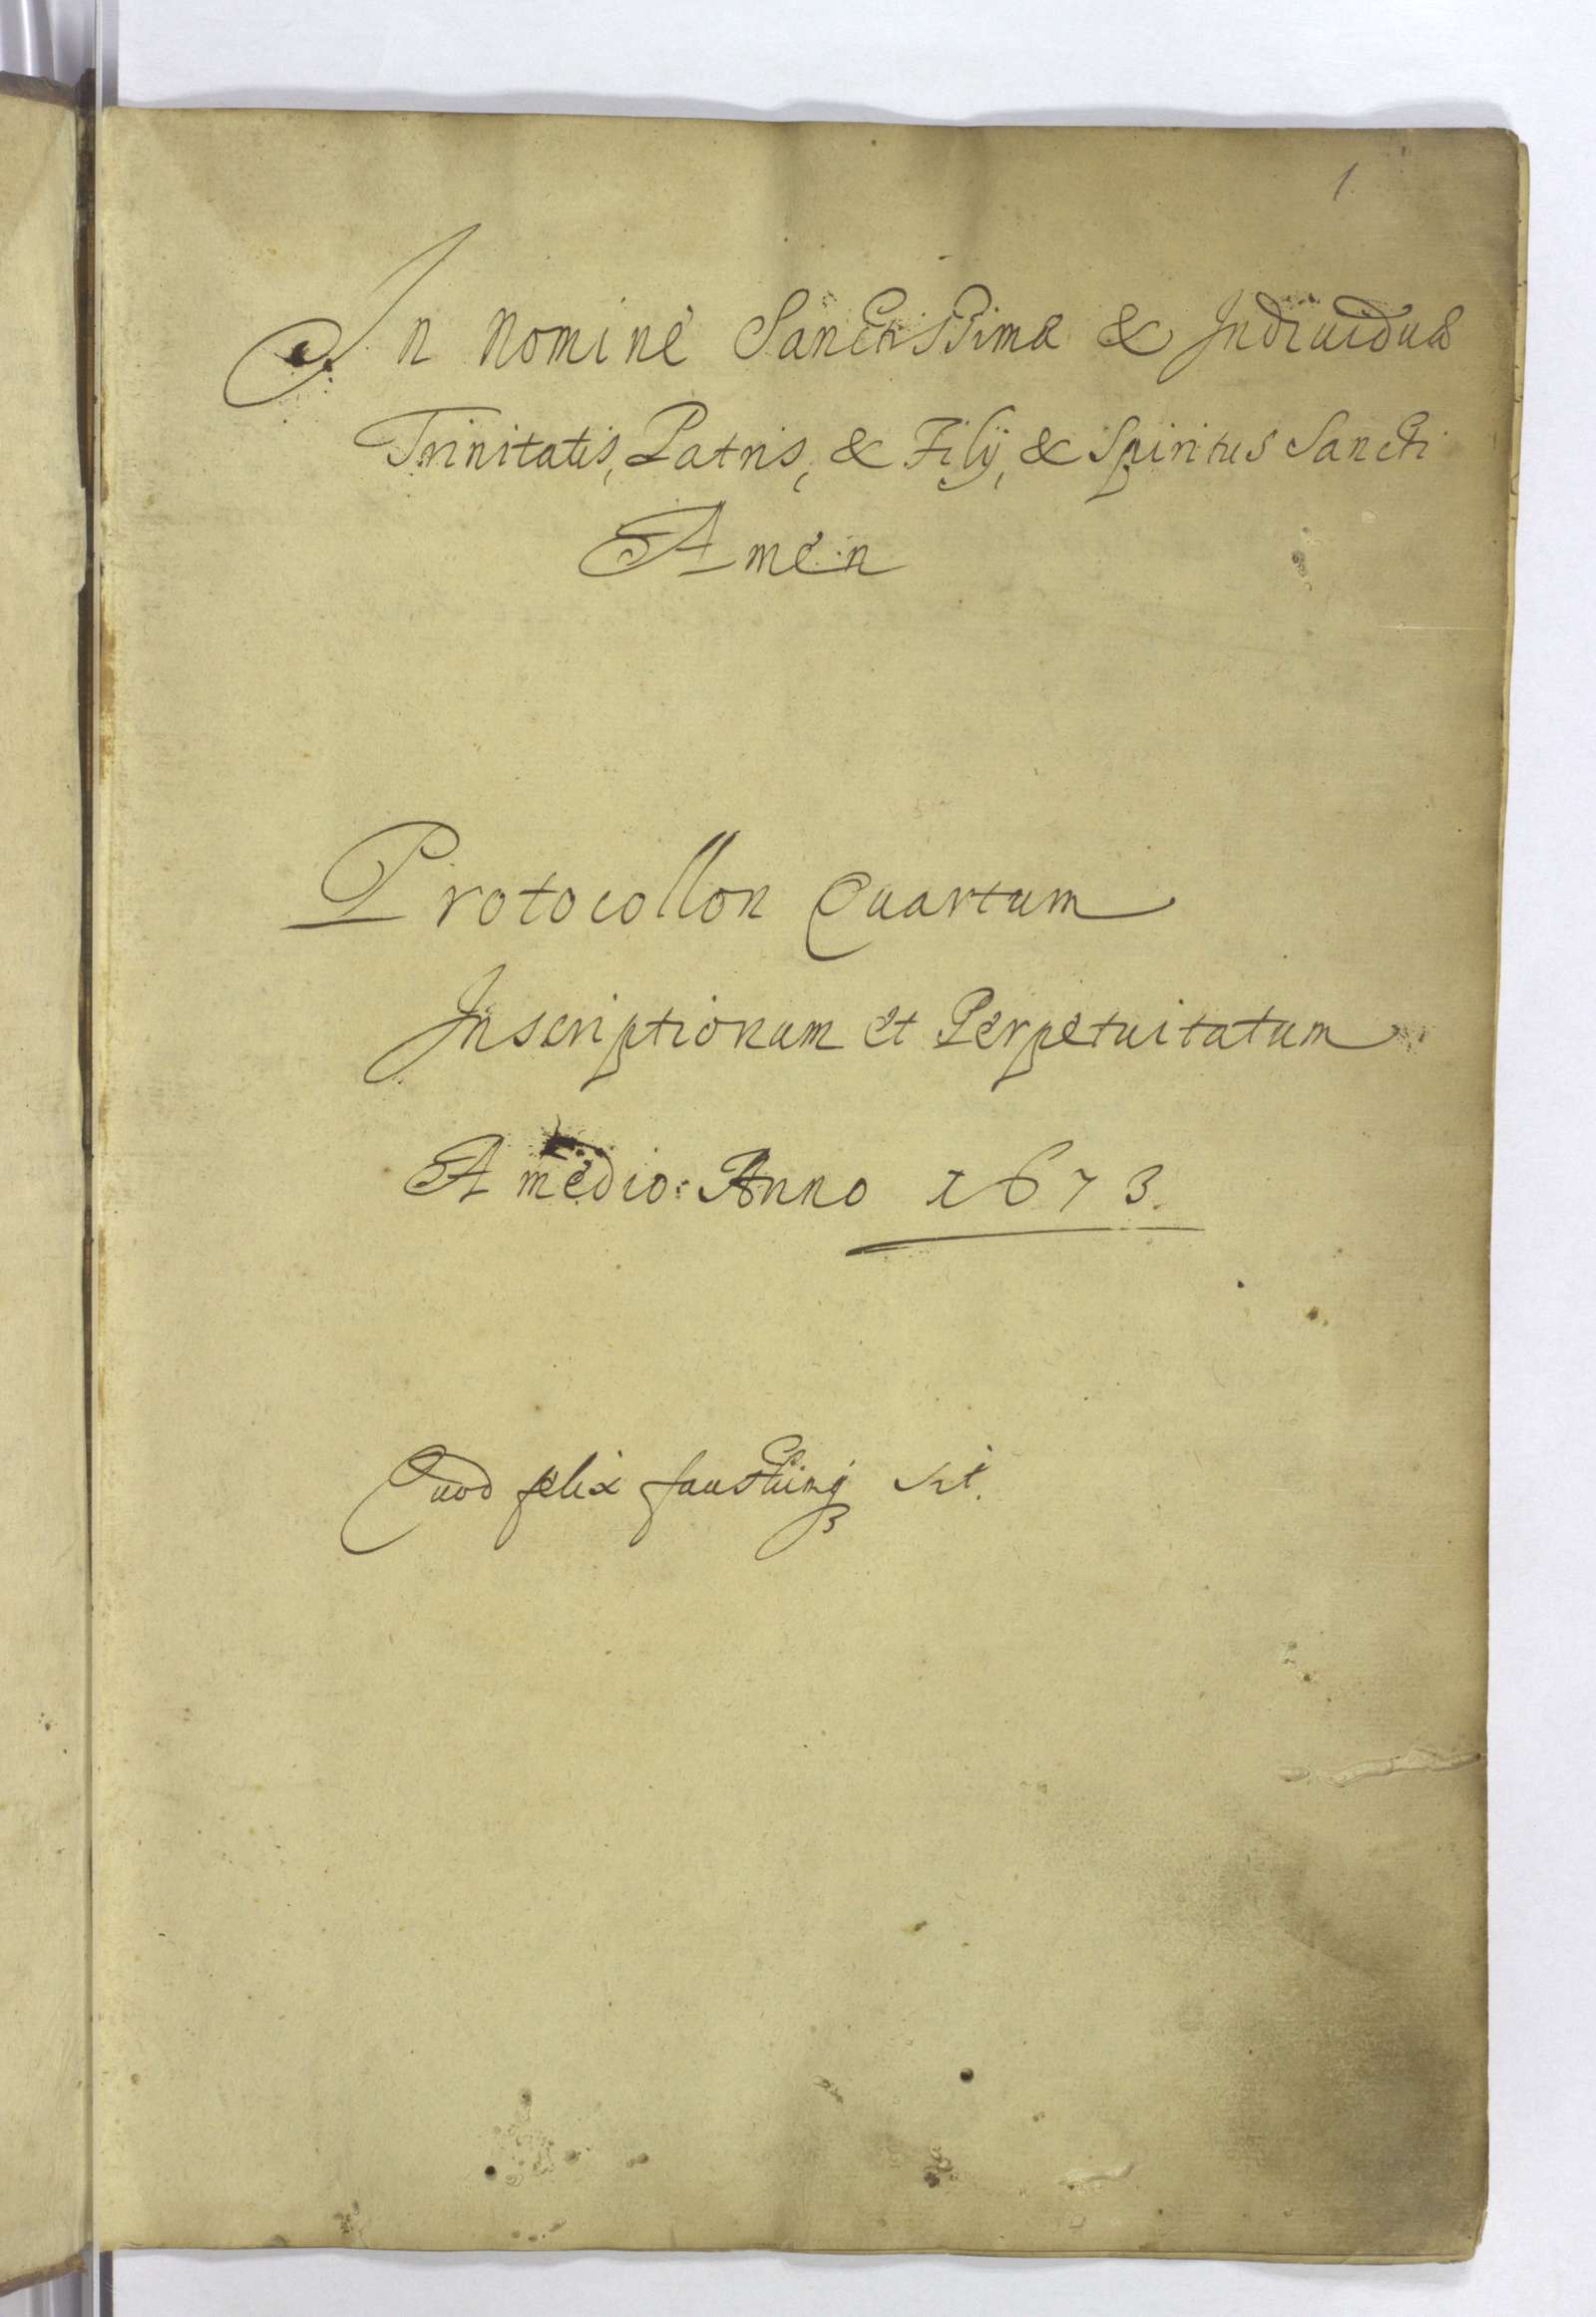 1
In nomine Sanctissimæ & Indiuiduæ
Trinitatis, Patris, & Filÿ, & Spiritus Sancti
Amen
Protocollon Quartum
Inscriptionum et Perpetuitatum
A medio Anno 1673.
Quod felix faustumqꝫ sit.